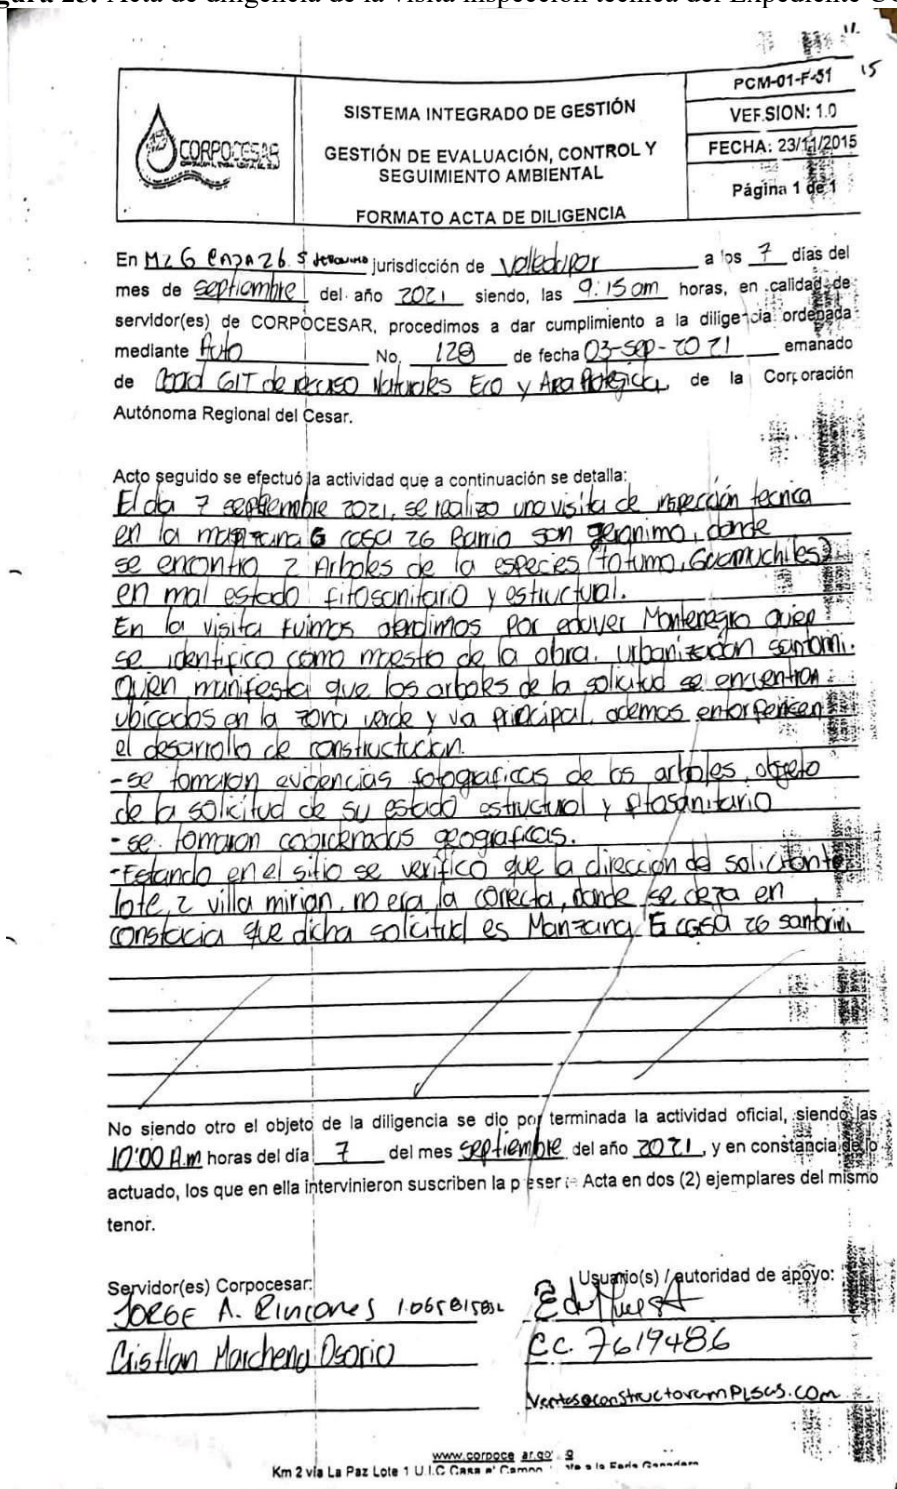 Acta de diligencia de la visita inspección técnica del Expediente
15
PCM-01-F-51
SISTEMA INTEGRADO DE GESTIÓN
VERSION: 1.0
CORPOCESAR
GESTIÓN DE EVALUACIÓN, CONTROL Y
SEGUIMIENTO AMBIENTAL
FECHA: 23/11/2015
Página 1 de 1
FORMATO ACTA DE DILIGENCIA
En Mz G casa 26 S Jeronimo jurisdicción de Valledupar a los 7 días del
mes de septiembre del año 2021 siendo, las 9:15 am horas, en calidad de
servidor(es) de CORPOCESAR, procedimos a dar cumplimiento a la diligencia ordenada
mediante Auto No. 128 de fecha 03-sep-2021 emanado
de Coord GIT de recurso Naturales Eco y Area de la Corporación
Autónoma Regional del Cesar.
Acto seguido se efectuó la actividad que a continuación se detalla:
El dia 7 septiembre 2021, se realizo una visita de inspección tecnica
en la manzana G casa 26 Barrio son geronimo, donde
se encontro 2 Arboles de la especies (totumo, Guamuchiles)
en mal estado fitosanitario y estructural.
En la visita fuimos atendimos por eduver Montenegro quien
se identifico como maestro de la obra. urbanización santorini.
Quien munifesta que los arboles de la solicitud se encuentran
ubicados en la zona verde y via principal, ademas entorpencen
el desarrollo de constructucion.
-se tomaron evidencias fotograficas de los arboles, objeto
de la solicitud de su estado estructural y fitosanitario
-se tomaron coordenadas geograficas.
-Estando en el sitio se verifico que la dirección del solicitante
lote, 2 villa mirian, no era la correcta, donde se deja en
constacia que dicha solicitud es Manzana G casa 26 santorini
No siendo otro el objeto de la diligencia se dio por terminada la actividad oficial, siendo las
10:00 A.m horas del día 7 del mes septiembre del año 2021, y en constancia de lo
actuado, los que en ella intervinieron suscriben la presente Acta en dos (2) ejemplares del mismo
tenor.
Servidor(es) Corpocesar:
Usuario(s) / autoridad de apoyo:
JORGE A. Rincones
Cristian Marchena Osorio
C.C. 7619486
Km 2 vía La Paz Lote 1 U.I.C Casa e' Campo